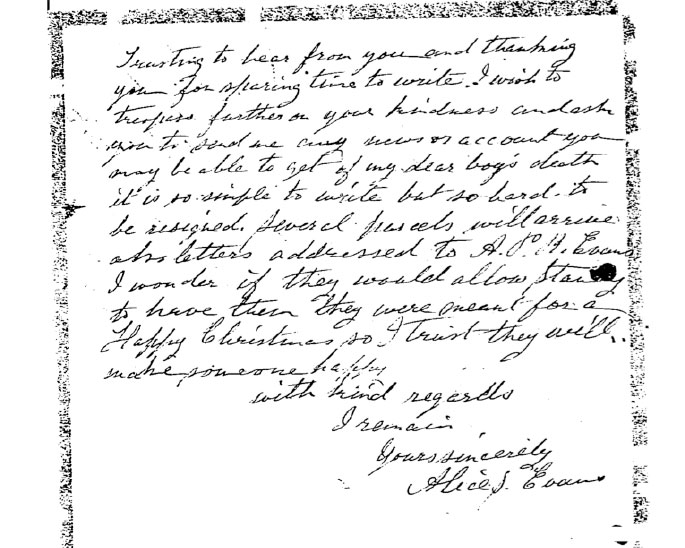 Trusting to hear from you and thanking
you for sparing time to write. I wish to
trespass further on your kindness and ask
you to send me any news or account you
may be able to get of my dear boy's death
it is so simple to write but so hard to
be resigned. Several parcels will arrive
also letters addressed to A. P. H. Evans
I wonder if they would allow
to have them they were meant for a
Happy Christmas so I trust they will
make someone happy
with kind regards
I remain
Yours sincerely
Alice J. Evans